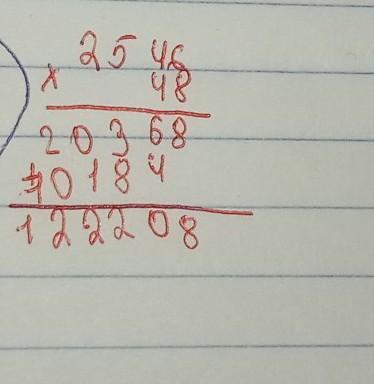 2546
x 48
20368
10184
122208